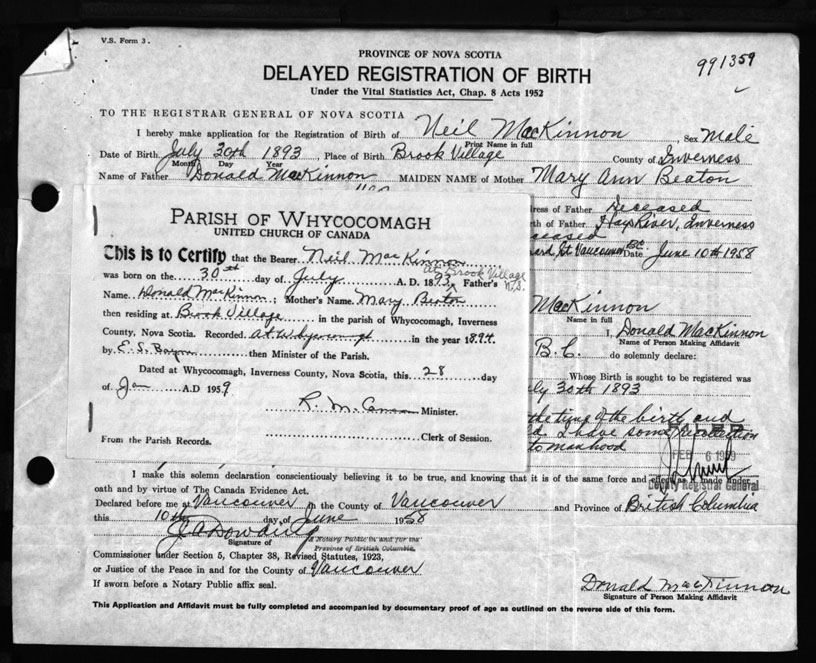 V.S. Form 3.
991359
PROVINCE OF NOVA SCOTIA
DELAYED REGISTRATION OF BIRTH
Under the Vital Statistics Act, Chap. 8 Acts 1952
TO THE REGISTRAR GENERAL OF NOVA SCOTIA
I hereby make application for the Registration of Birth of Neil MacKinnon, Sex Male
Print Name in full
Date of Birth July 30th 1893, Place of Birth Brook Village County of Inverness
Month Day Year
Name of Father Donald MacKinnon MAIDEN NAME of Mother Mary Ann Beaton
dress of Father deceased
th of Father Hays River, Inverness
eased
St Vancouver B.C. Date June 10th 1958
PARISH OF WHYCOCOMAGH
UNITED CHURCH OF CANADA
This is to Certify that the Bearer Neil MacKinnon
at Brook Village N.S.
was born on the 30th day of July A.D. 1893, Father's
Name Donald MacKinnon; Mother's Name Mary Beaton
then residing at Brook Village in the parish of Whycocomagh, Inverness
County, Nova Scotia. Recorded at in the year 1894
by E. S. Bayne then Minister of the Parish.
Dated at Whycocomagh, Inverness County, Nova Scotia, this 28 day
of Jan A.D 1959
Minister.
Clerk of Session.
From the Parish Records.
MacKinnon
Name in full
I, Donald MacKinnon
Name of Person Making Affidavit
B.C. do solemnly declare:
Whose Birth is sought to be registered was
ly 30th 1893
the time of the birth and
d I have some recollection
to manhood
FILED
FEB 6 1959
Deputy Registrar General
I make this solemn declaration conscientiously believing it to be true, and knowing that it is of the same force and effect as if made under
oath and by virtue of The Canada Evidence Act.
Declared before me at Vancouver in the County of Vancouver and Province of British Columbia
this 10th day of June 1958
J A Dowding
Signature of
a Notary Public in and for the
Province of British Columbia.
Commissioner under Section 5, Chapter 38, Revised Statutes, 1923,
or Justice of the Peace in and for the County of Vancouver
If sworn before a Notary Public affix seal.
Donald MacKinnon
Signature of Person Making Affidavit
This Application and Affidavit must be fully completed and accompanied by documentary proof of age as outlined on the reverse side of this form.